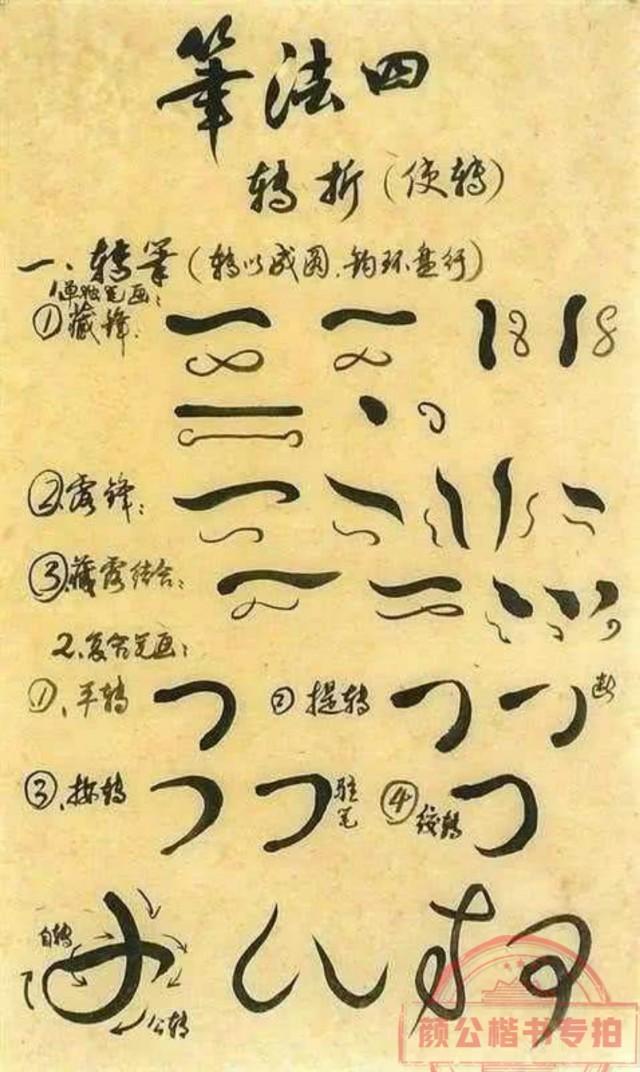 筆法四
转折(使转)
一、转筆(转以成圆、钩环盘行)
1.单独笔画:
①藏锋:
②露锋:
③藏露结合:
2.复合笔画:
①、平转 ②提转 断
③、按转 驻笔 ④绞转
自转
公转
颜公楷书专拍